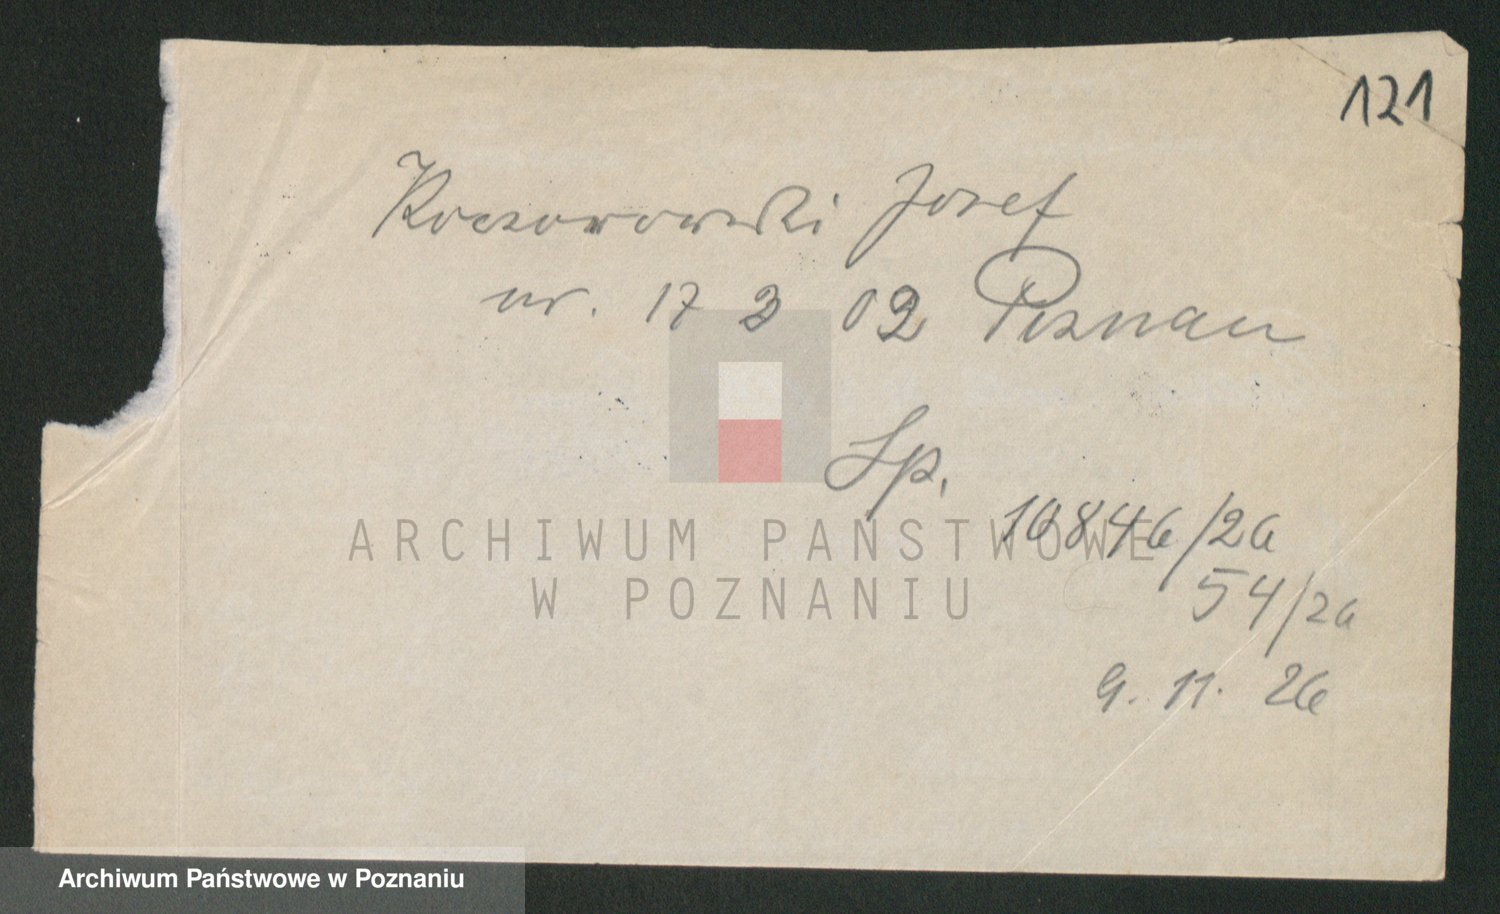 121
Koczorowski Josef
ur. 17 3 02 Poznan
Sp.
10846/26
54/26
9. 11. 26
ARCHIWUM PAŃSTWOWE
W POZNANIU
Archiwum Państwowe w Poznaniu